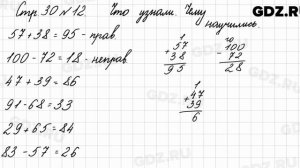 GDZ.RU
Стр. 30 № 12. Что узнали. Чему научились
57 + 38 = 95 - прав.
100 - 72 = 18 - неправ.
47 + 39 = 86
91 - 68 = 33
29 + 65 = 84
83 - 57 = 26
1
+ 57
38
95
10
- 100
72
28
1
+ 47
39
6
GDZ.RU